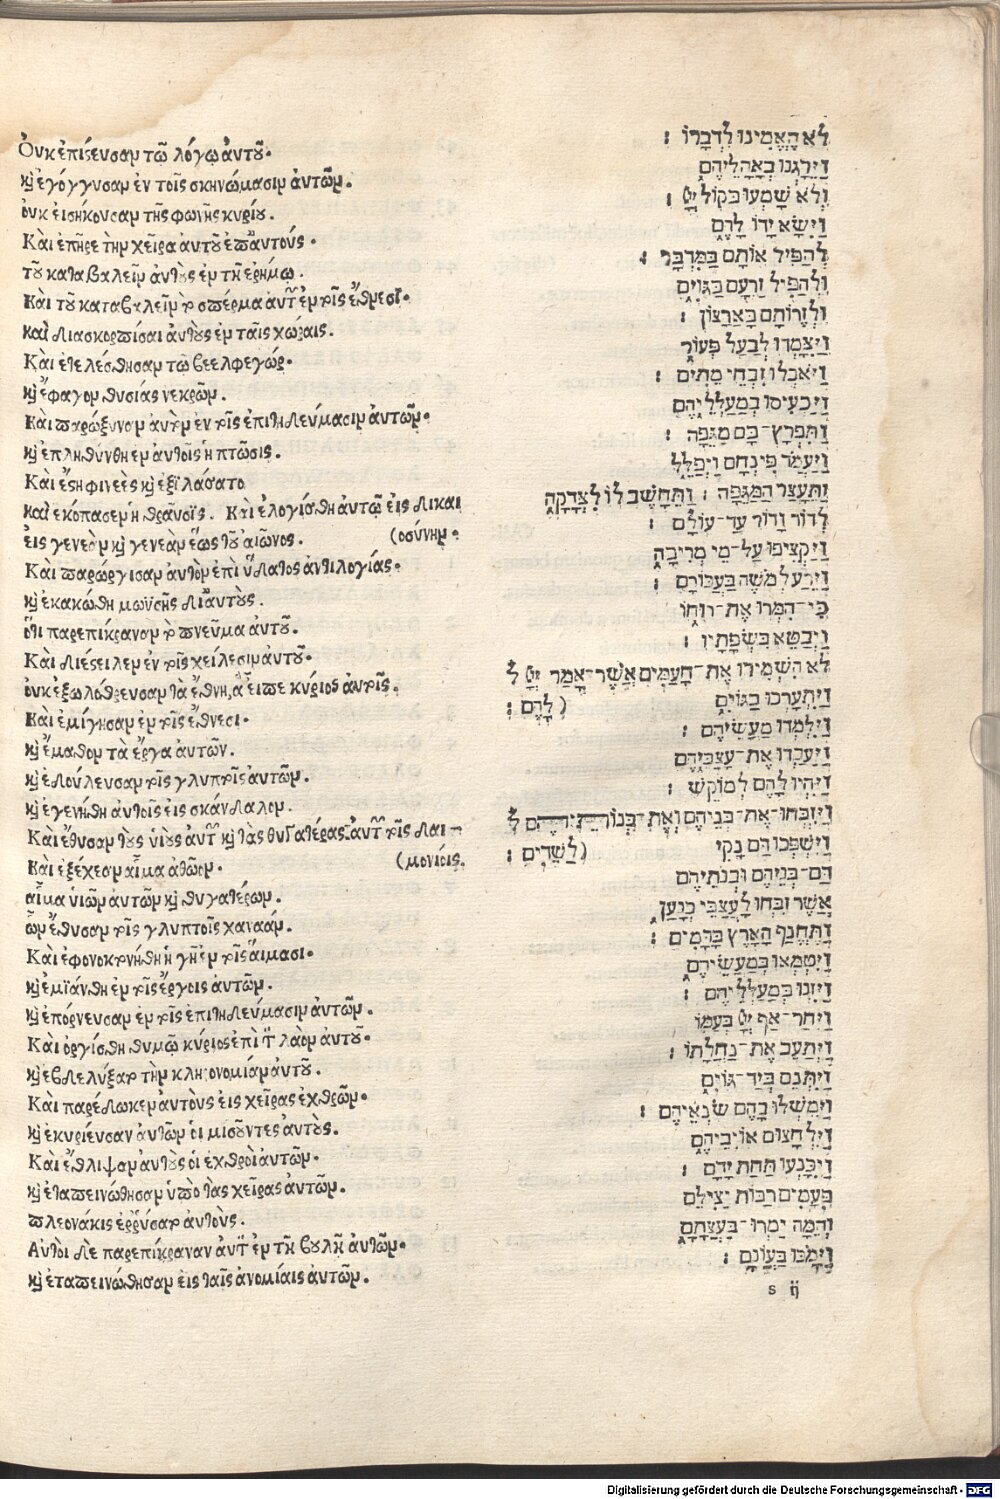 Ὀυκ ἐπίϛευσαν τῷ λόγῳ ἀυτοῦ.
κỳ ἐγόγγυσαν ἐν τοῖς σκηνώμασιν ἀυτῶν.
ὀυκ εἰσήκουσαν τῆς φωνῆς κυρίου.
Καὶ ἐπῆρε τὴν χεῖρα ἀυτοῦ ἐπ' ἀυτούς.
τοῦ καταβαλεῖν ἀυτοὺς ἐν τῇ ἐρήμῳ.
Καὶ τοῦ καταβαλεῖν τὸ σπέρμα ἀυτῶν ἐν τοῖς ἔθνεσι.
καὶ διασκορπίσαι ἀυτοὺς ἐν ταῖς χώραις.
Καὶ ἐτελέσθησαν τῷ βεελφεγώρ.
κỳ ἔφαγον θυσίας νεκρῶν.
Καὶ παρώξυναν ἀυτὸν ἐν τοῖς ἐπιτηδεύμασιν ἀυτῶν.
κỳ ἐπληθύνθη ἐν ἀυτοῖς ἡ πτῶσις.
Καὶ ἔϛη φινεὲς κỳ ἐξιλάσατο
καὶ ἐκόπασεν ἡ θραῦσις. Καὶ ἐλογίσθη ἀυτῷ εἰς δικαι
ἐις γενεὰν κỳ γενεὰν ἕως τοῦ αἰῶνος. (οσύνην.
Καὶ παρώργισαν ἀυτὸν ἐπὶ ὕδατος ἀντιλογίας.
κỳ ἐκακώθη μωϋσῆς δι' ἀυτούς.
ὅτι παρεπίκραναν τὸ πνεῦμα ἀυτοῦ.
Καὶ διέϛειλεν ἐν τοῖς χείλεσιν ἀυτοῦ.
ὀυκ ἐξωλόθρευσαν τὰ ἔθνη, ἃ εἶπε κύριος ἀυτοῖς.
Καὶ ἐμίγησαν ἐν τοῖς ἔθνεσι.
κỳ ἔμαθον τὰ ἔργα ἀυτῶν.
κỳ ἐδούλευσαν τοῖς γλυπτοῖς ἀυτῶν.
κỳ ἐγενήθη ἀυτοῖς εἰς σκάνδαλον.
Καὶ ἔθυσαν τοὺς ὑιοὺς ἀυτῶν κỳ τὰς θυγατέρας ἀυτῶν τοῖς δαι-
Καὶ ἐξέχεαν αἷμα ἀθῶον. (μονίοις.
αἷμα ὑιῶν ἀυτῶν κỳ θυγατέρων.
ὧν ἔθυσαν τοῖς γλυπτοῖς χαναάν.
Καὶ ἐφονοκτονήθη ἡ γῆ ἐν τοῖς ἅιμασι.
κỳ ἐμιάνθη ἐν τοῖς ἔργοις ἀυτῶν.
κỳ ἐπόρνευσαν ἐν τοῖς ἐπιτηδεύμασιν ἀυτῶν.
Καὶ ὀργίσθη θυμῷ κύριος ἐπὶ τὸν λαὸν ἀυτοῦ.
κỳ ἐβδελύξατο τὴν κληρονομίαν ἀυτοῦ.
Καὶ παρέδωκεν ἀυτοὺς εἰς χεῖρας ἐχθρῶν.
κỳ ἐκυρίευσαν ἀυτῶν ὁι μισοῦντες ἀυτούς.
Καὶ ἔθλιψαν ἀυτοὺς ὁι ἐχθροὶ ἀυτῶν.
κỳ ἐταπεινώθησαν ὑπὸ τὰς χεῖρας ἀυτῶν.
πλεονάκις ἐρρύσατο ἀυτούς.
Αυτοὶ δὲ παρεπίκραναν ἀυτὸν ἐν τῇ βουλῇ ἀυτῶν.
κỳ ἐταπεινώθησαν ἐις ταῖς ἀνομίαις ἀυτῶν.
לֹא הֶאֱמִינוּ לִדְבָרוֹ :
וַיֵּרָגְנוּ בְאָהֳלֵיהֶם
וְלֹא שָׁמְעוּ בְּקוֹל יְיָ :
וַיִּשָּׂא יָדוֹ לָהֶם
לְהַפִּיל אוֹתָם בַּמִּדְבָּר :
וּלְהַפִּיל זַרְעָם בַּגּוֹיִם
וּלְזָרוֹתָם בָּאֲרָצוֹן :
וַיִּצָּמְדוּ לְבַעַל פְּעוֹר
וַיֹּאכְלוּ זִבְחֵי מֵתִים :
וַיַּכְעִיסוּ בְּמַעַלְלֵיהֶם
וַתִּפְרָץ־בָּם מַגֵּפָה :
וַיַּעֲמֹד פִּינְחָס וַיְפַלֵּל
וַתֵּעָצַר הַמַּגֵּפָה : וַתֵּחָשֶׁב לוֹ לִצְדָקָה
לְדוֹר וָדוֹר עַד־עוֹלָם :
וַיַּקְצִיפוּ עַל־מֵי מְרִיבָה
וַיֵּרַע לְמֹשֶׁה בַּעֲבוּרָם :
כִּי־הִמְרוּ אֶת־רוּחוֹ
וַיְבַטֵּא בִּשְׂפָתָיו :
לֹא הִשְׁמִידוּ אֶת־הָעַמִּים אֲשֶׁר־אָמַר יְיָ ל
וַיִּתְעָרְבוּ בַגּוֹיִם ( לָהֶם :
וַיִּלְמְדוּ מַעֲשֵׂיהֶם :
וַיַּעַבְדוּ אֶת־עֲצַבֵּיהֶם
וַיִּהְיוּ לָהֶם לְמוֹקֵשׁ :
וַיִּזְבְּחוּ אֶת־בְּנֵיהֶם וְאֶת־בְּנוֹתֵיהֶם ל
וַיִּשְׁפְּכוּ דָם נָקִי (לַשֵּׁדִים :
דַּם־בְּנֵיהֶם וּבְנֹתֵיהֶם
אֲשֶׁר זִבְּחוּ לַעֲצַבֵּי כְנָעַן
וַתֶּחֱנַף הָאָרֶץ בַּדָּמִים :
וַיִּטְמְאוּ בְמַעֲשֵׂיהֶם
וַיִּזְנוּ בְּמַעַלְלֵיהֶם :
וַיִּחַר־אַף יְיָ בְּעַמּוֹ
וַיְתָעֵב אֶת־נַחֲלָתוֹ :
וַיִּתְּנֵם בְּיַד־גּוֹיִם
וַיִּמְשְׁלוּ בָהֶם שֹׂנְאֵיהֶם :
וַיִּלְחָצוּם אוֹיְבֵיהֶם
וַיִּכָּנְעוּ תַּחַת יָדָם :
פְּעָמִים רַבּוֹת יַצִּילֵם
וְהֵמָּה יַמְרוּ־בַעֲצָתָם
וַיָּמֹכּוּ בַּעֲוֹנָם :
s ij
Digitalisierung gefördert durch die Deutsche Forschungsgemeinschaft - DFG